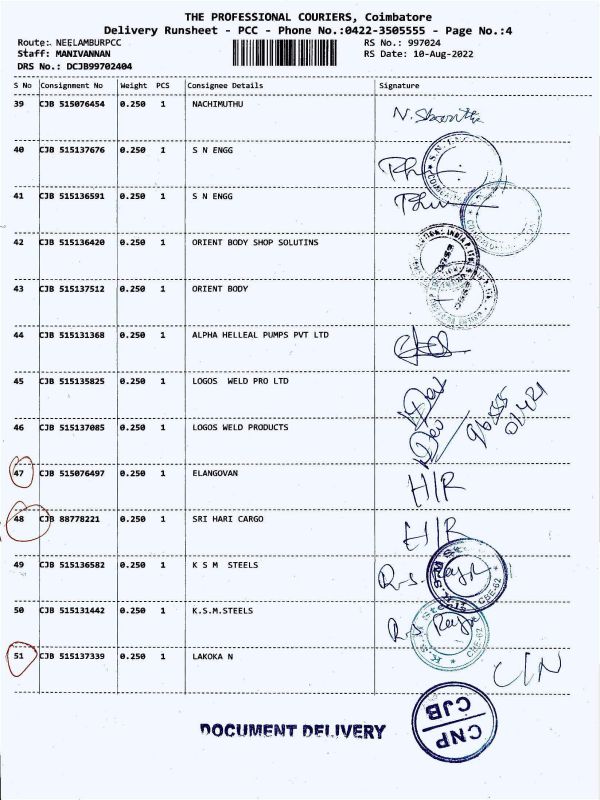 THE PROFESSIONAL COURIERS, Coimbatore
Delivery Runsheet - PCC - Phone No.:0422-3505555 - Page No.:4
Route: NEELAMBURPCC RS No.: 997024
Staff: MANIVANNAN RS Date: 10-Aug-2022
DRS No.: DCJB99702404
S No Consignment No Weight PCS Consignee Details Signature
39 CJB 515076454 0.250 1 NACHIMUTHU
40 CJB 515137676 0.250 1 S N ENGG
41 CJB 515136591 0.250 1 S N ENGG
42 CJB 515136420 0.250 1 ORIENT BODY SHOP SOLUTINS
43 CJB 515137512 0.250 1 ORIENT BODY
44 CJB 515131368 0.250 1 ALPHA HELLEAL PUMPS PVT LTD
45 CJB 515135825 0.250 1 LOGOS WELD PRO LTD
46 CJB 515137085 0.250 1 LOGOS WELD PRODUCTS
47 CJB 515076497 0.250 1 ELANGOVAN H/R
48 CJB 88778221 0.250 1 SRI HARI CARGO H/R
49 CJB 515136582 0.250 1 K S M STEELS
50 CJB 515131442 0.250 1 K.S.M.STEELS
51 CJB 515137339 0.250 1 LAKOKA N C/N
DOCUMENT DELIVERY
CNP
CJB